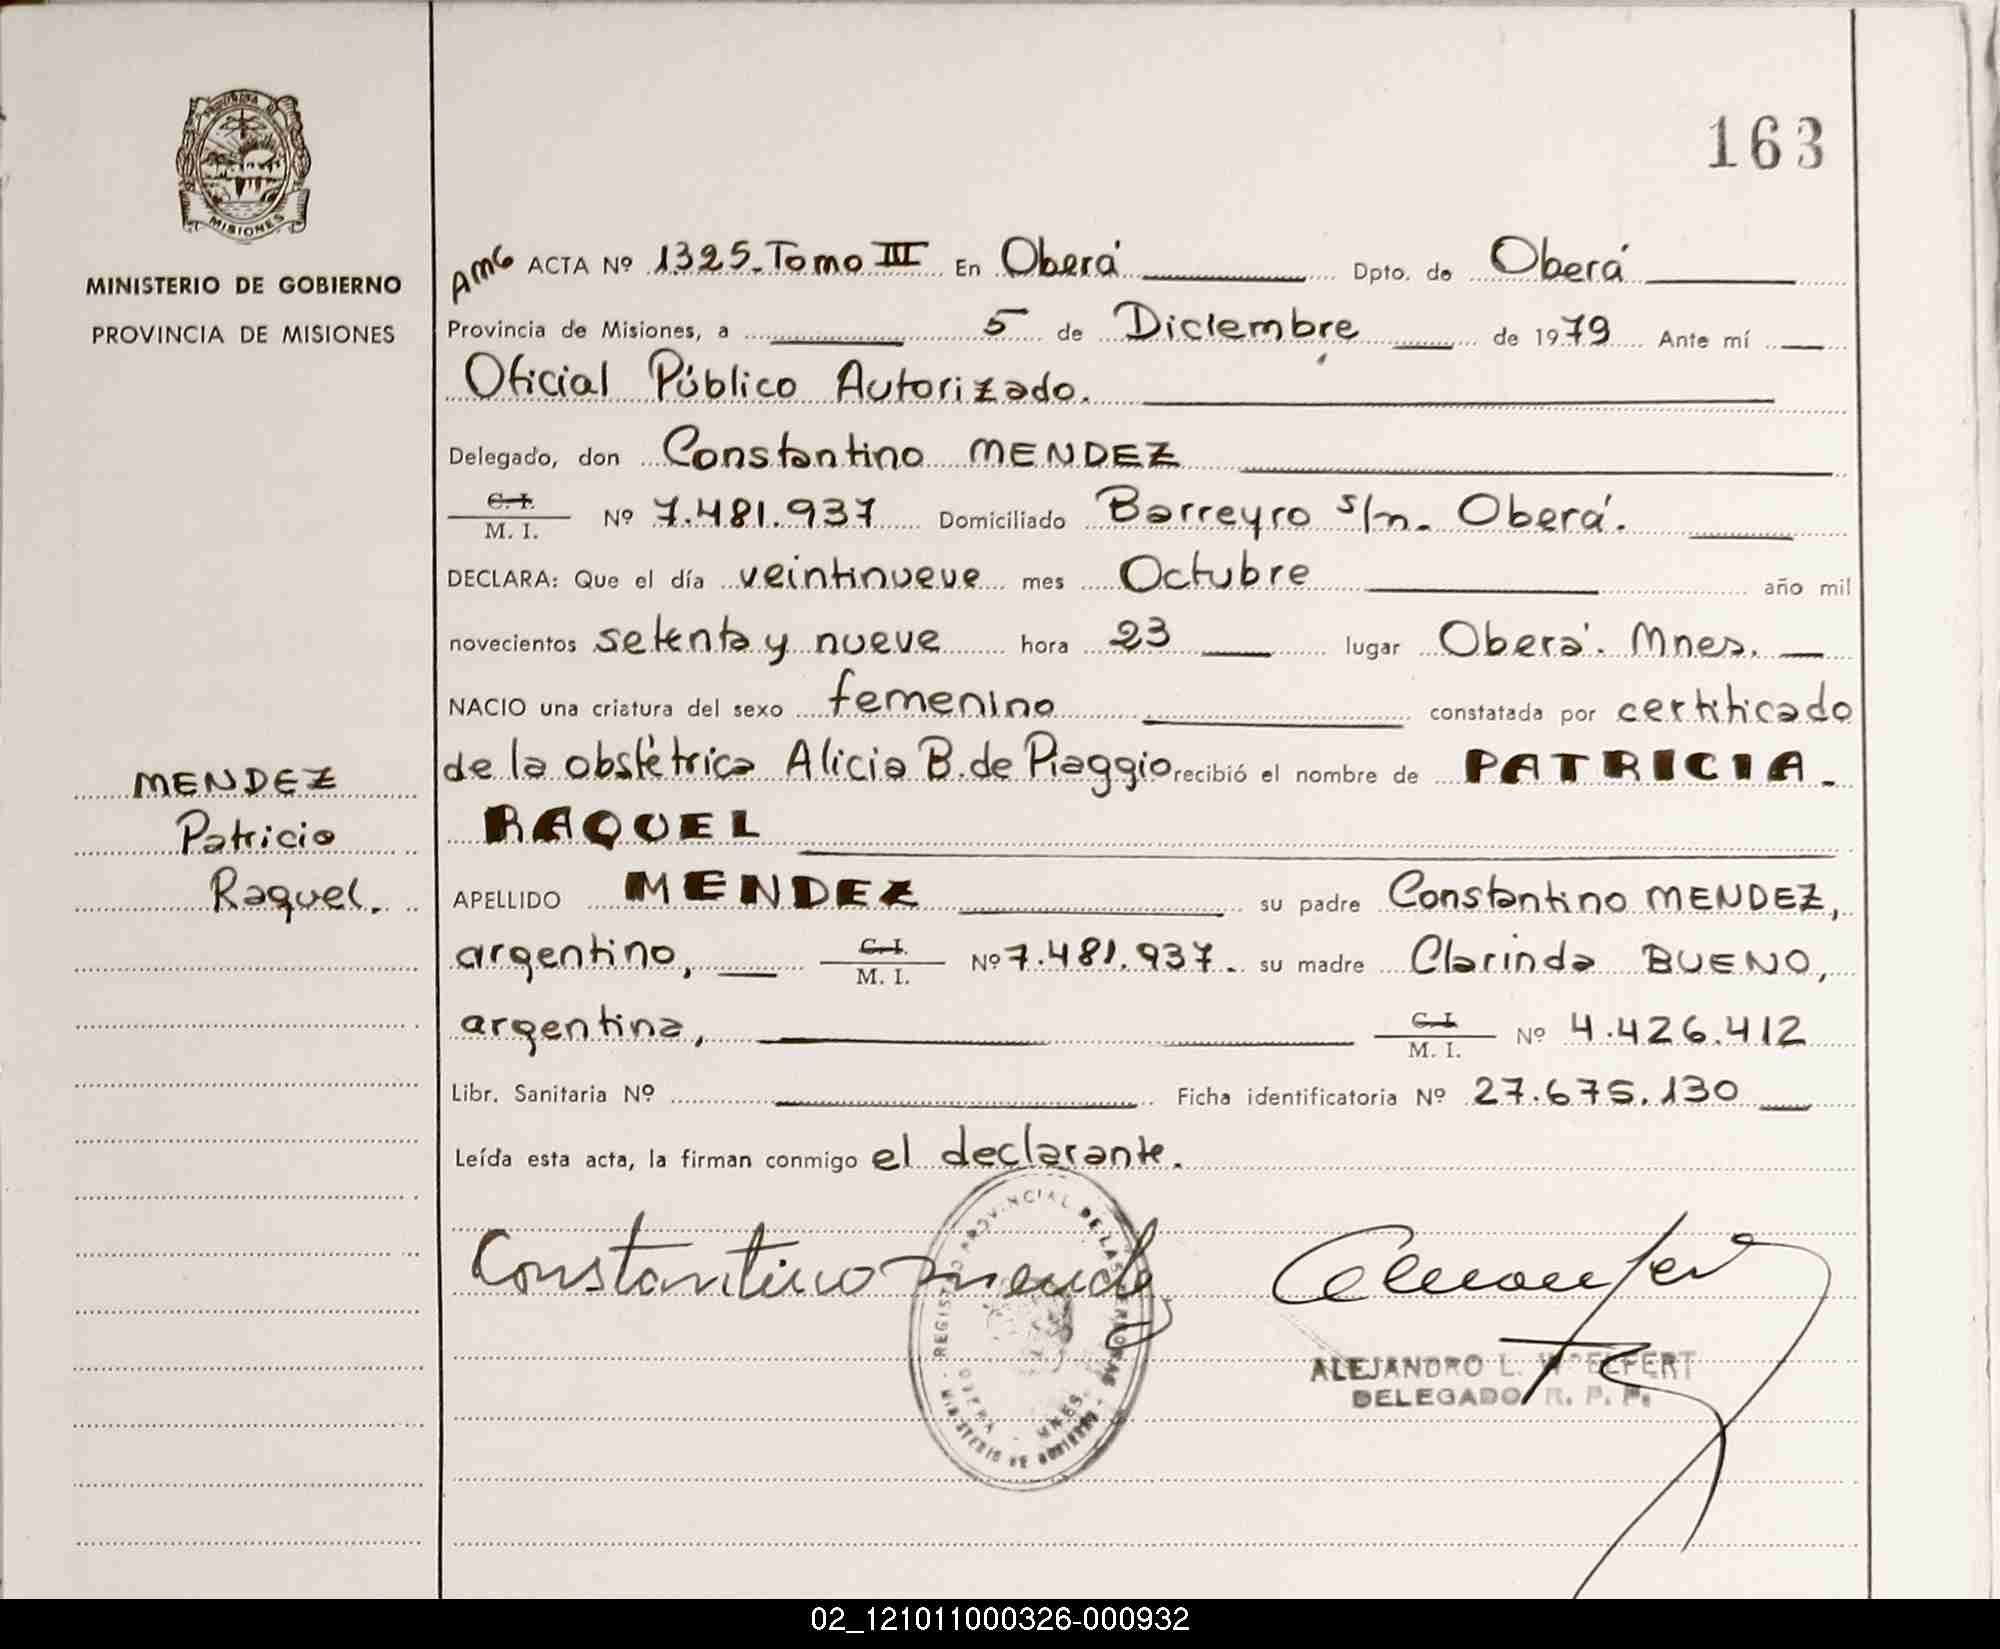 163
PROVINCIA DE
MISIONES
MINISTERIO DE GOBIERNO
PROVINCIA DE MISIONES
MENDEZ
Patricia
Raquel.
AMG ACTA Nº 1325. Tomo III En Oberá Dpto. de Oberá
Provincia de Misiones, a 5 de Diciembre de 1979 Ante mí
Oficial Público Autorizado.
Delegado, don Constantino MENDEZ
C. I.
M. I. Nº 7.481.937 Domiciliado Barreyro s/n. Oberá.
DECLARA: Que el día veintinueve mes Octubre año mil
novecientos setenta y nueve hora 23 lugar Oberá. Mnes.
NACIO una criatura del sexo femenino constatada por certificado
de la obstétrica Alicia B. de Piaggio recibió el nombre de PATRICIA
RAQUEL
APELLIDO MENDEZ su padre Constantino MENDEZ,
argentino, C. I. M. I. Nº 7.481.937. su madre Clarinda BUENO,
argentina, C. I. M. I. Nº 4.426.412
Libr. Sanitaria Nº Ficha identificatoria Nº 27.675.130
Leída esta acta, la firman conmigo el declarante.
Constantino Mendez
REGISTRO PROVINCIAL DE LAS PERSONAS
OBERA - MNES.
MINISTERIO DE GOBIERNO
ALEJANDRO L. WOELFERT
DELEGADO R. P. P.
02_121011000326-000932